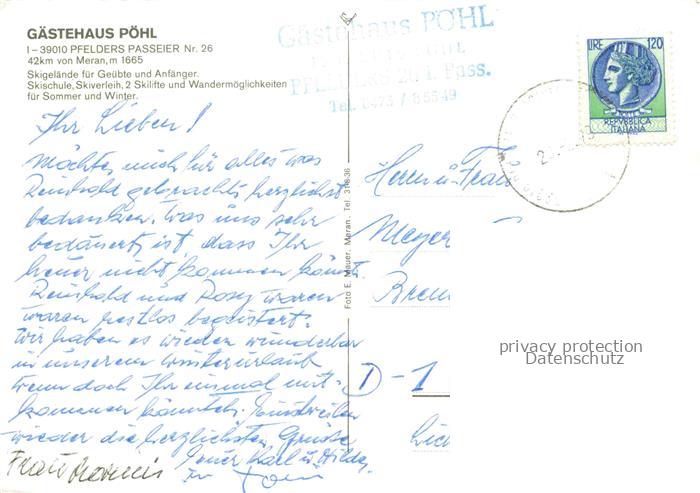 GÄSTEHAUS PÖHL
I-39010 PFELDERS PASSEIER Nr. 26
42km von Meran, m 1665
Skigelände für Geübte und Anfänger.
Skischule, Skiverleih, 2 Skilifte und Wandermöglichkeiten
für Sommer und Winter.
Gästehaus PÖHL
Tel. 0473 / 85549
LIRE 120
REPVBBLICA
ITALIANA
Ihr Lieben!
Möchte mich für alles was
Reinhold gebracht herzlichst
bedanken. Was uns sehr
bedauert, ist dass Ihr
heuer nicht kommen könnt.
Reinhold und Rosy waren
waren restlos begeistert.
Wir haben es wieder wunderbar
in unserem Winterurlaub
wenn doch Ihr einmal mit-
kommen könntet. Einstweilen
wieder die herzlichsten Grüsse
Euer Karl u. Hilde
Herrn u. Frau
Meyer
Brem
D-1
Foto E. Mauer, Meran, Tel. 31636
privacy protection
Datenschutz